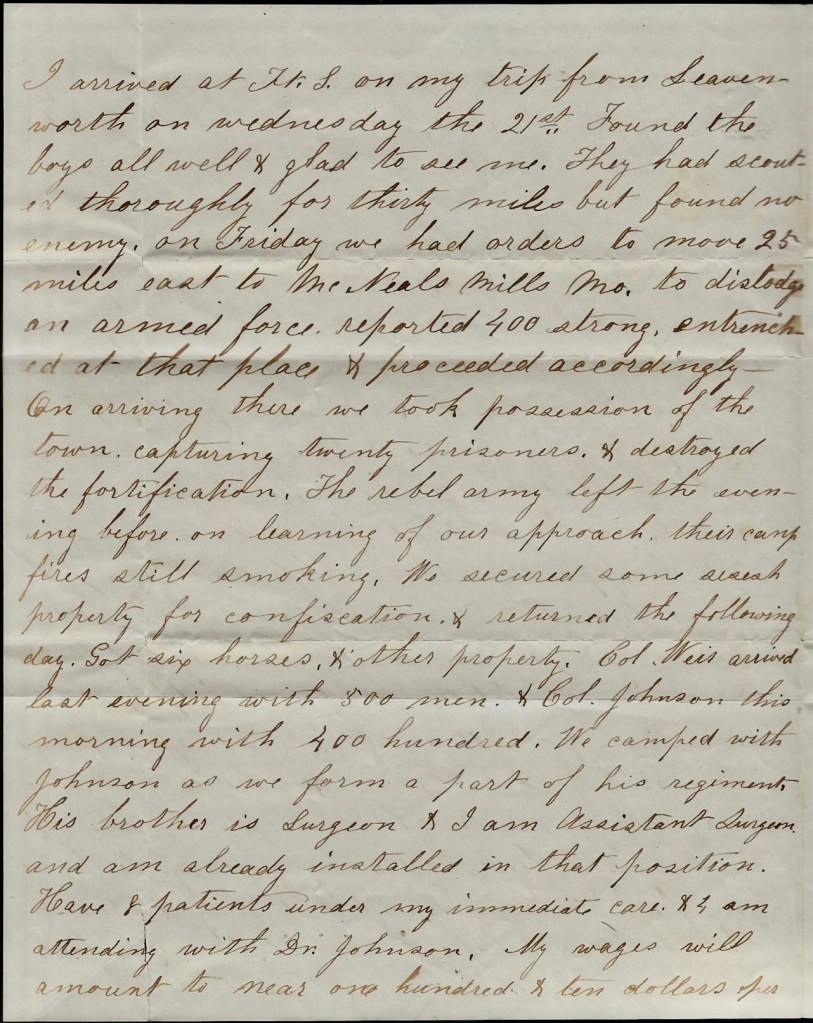 I arrived at Ft. S. on my trip from Leaven-
worth on wednesday the 21st. Found the
boys all well & glad to see me. They had scout-
ed thoroughly for thirty miles but found no
enemy. on Friday we had orders to move 25
miles east to McNeals Mills Mo. to dislodge
an armed force. reported 400 strong, entrench-
ed at that place & proceeded accordingly—
On arriving there we took possession of the
town. capturing twenty prisoners. & destroyed
the fortification. The rebel army left the even-
ing before. on learning of our approach. their camp
fires still smoking. We secured some sesesh
property for confiscation. & returned the following
day. Got six horses, & other property. Col. Weis arrived
last evening with 500 men. & Col. Johnson this
morning with 400 hundred. We camped with
Johnson as we form a part of his regiment.
His brother is Surgeon & I am Assistant Surgeon.
and am already installed in that position.
Have 8 patients under my immediate care. & 4 am
attending with Dr. Johnson. My wages will
amount to near one hundred & ten dollars per